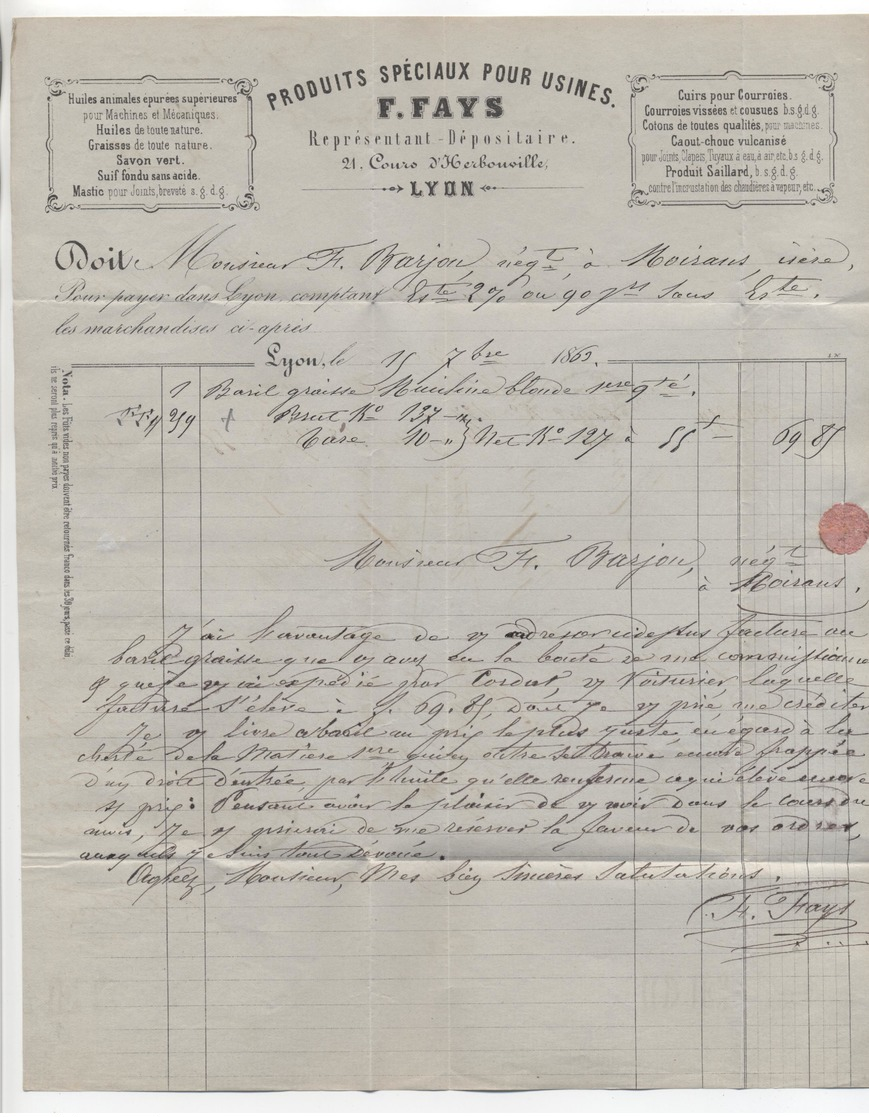 PRODUITS SPÉCIAUX POUR USINES.
F. FAYS
Représentant-Dépositaire.
21. Cours d'Herbouville,
LYON
Huiles animales épurées supérieures
pour Machines et Mécaniques.
Huiles de toute nature.
Graisses de toute nature.
Savon vert.
Suif fondu sans acide.
Mastic pour Joints, breveté s. g. d. g.
Cuirs pour Courroies.
Courroies vissées et cousues b.s.g.d.g.
Cotons de toutes qualités, pour machines.
Caout-chouc vulcanisé
pour Joints, Clapets, Tuyaux à eau, à air, etc, b.s.g.d.g.
Produit Saillard, b.s.g.d.g.
contre l'incrustation des chaudières à vapeur, etc.
Doit Monsieur F. Barjon, négt, à Moirans, isère,
Pour payer dans Lyon, comptant Este 2% ou 90 jrs sans Este.
les marchandises ci-après
Lyon, le 15 7bre 186
Nota - Les Fûts vides non payés doivent être retournés franco dans les 30 jours, passé ce délai
ils ne seront plus repris qu'à moitié prix.
1 Baril graisse blonde 1ere qté.
259 Brut Ko 137 "
Tare 10 " Net Ko 127 à 55f 69 85
Monsieur F. Barjon, négt
à Moirans.
J'ai l'avantage de vs adresser ci dessus facture au
baril graisse que vs avez eu la bonté de me commissionner
& que je vs ai expédié par Cordat, vs Voiturier laquelle
facture s'élève à f. 69.85, dont je vs prie me créditer
Je vs livre ce baril au prix le plus juste, eu égard à la
cherté de la Matière 1ere qui en outre se trouve encore frappée
d'un droit d'entrée, par l'huile qu'elle renferme ce qui élève encore
prix: Pensant avoir le plaisir de vs voir dans le cours du
mois, Je vs prierai de me réserver la faveur de vos ordres,
auxquels je suis tout dévoué.
Agréez, Monsieur, Mes bien Sincères Salutations.
F. Fays